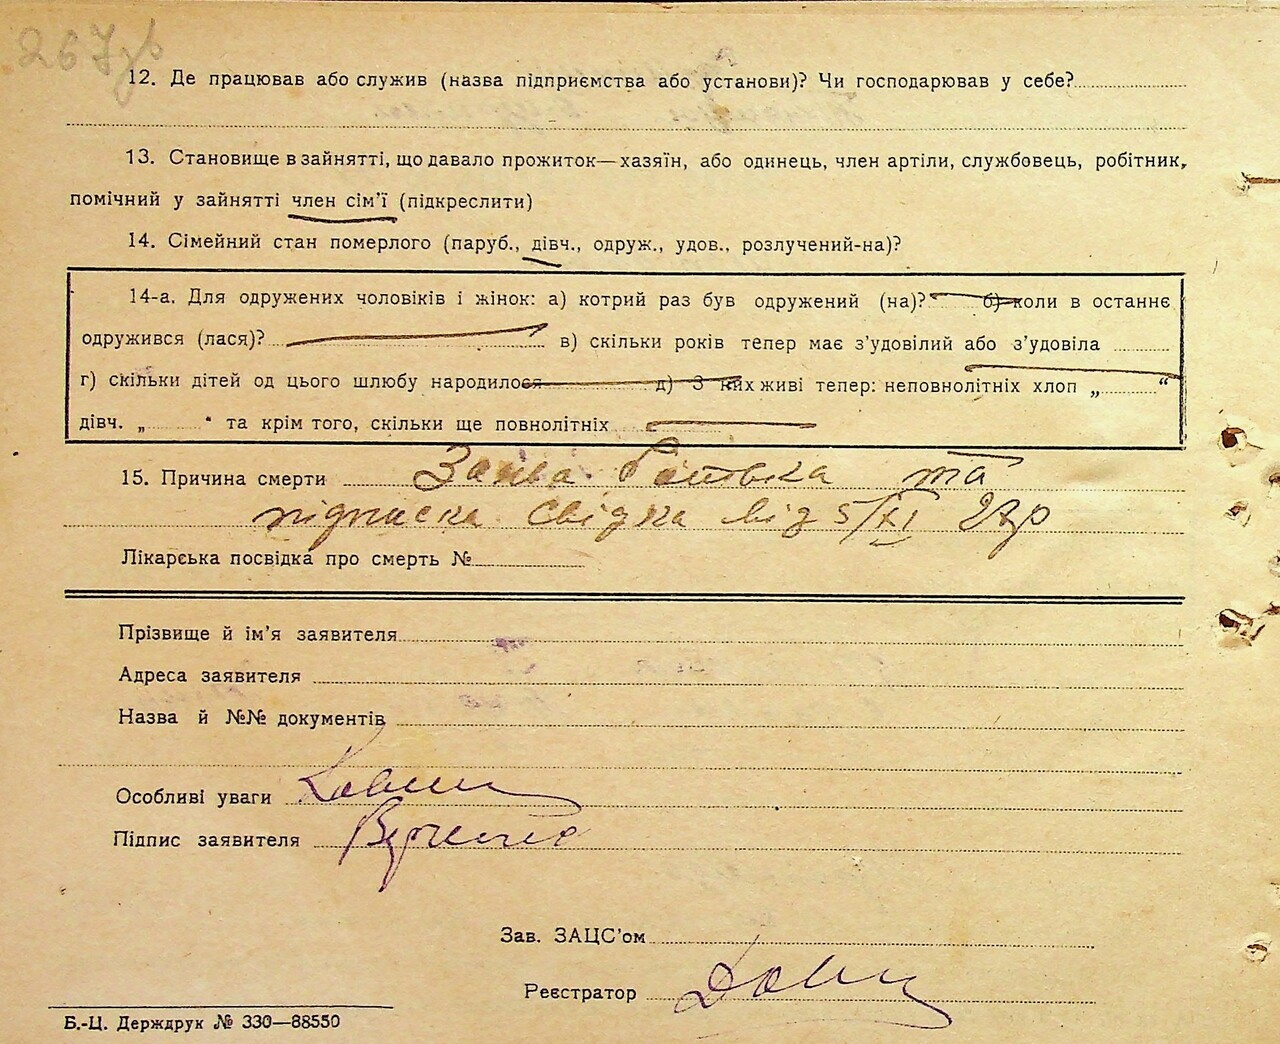 267зв
12. Де працював або служив (назва підприємства або установи)? Чи господарював у себе?
13. Становище в зайнятті, що давало прожиток—хазяїн, або одинець, член артіли, службовець, робітник,
помічний у зайнятті член сім'ї (підкреслити)
14. Сімейний стан померлого (паруб., дівч., одруж., удов., розлучений-на)?
14-а. Для одружених чоловіків і жінок: а) котрий раз був одружений (на)? б) коли в останнє
одружився (лася)? в) скільки років тепер має з'удовілий або з'удовіла
г) скільки дітей од цього шлюбу народилося д) З них живі тепер: неповнолітніх хлоп „ “
дівч. „ “ та крім того, скільки ще повнолітніх
15. Причина смерти Заява батька та
підписка свідка від 5/XI 27р
Лікарська посвідка про смерть №
Прізвище й ім'я заявителя
Адреса заявителя
Назва й №№ документів
Особливі уваги
Підпис заявителя
Зав. ЗАЦС'ом
Реєстратор
Б.-Ц. Держдрук № 330—88550